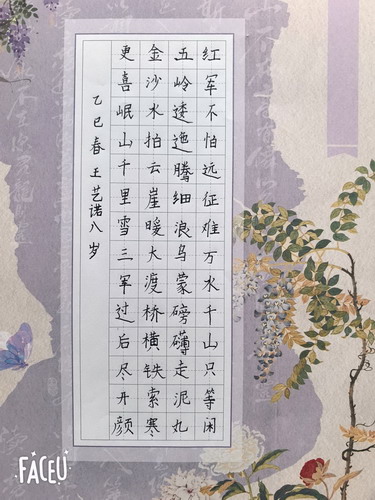 红军不怕远征难万水千山只等闲
五岭逶迤腾细浪乌蒙磅礴走泥丸
金沙水拍云崖暖大渡桥横铁索寒
更喜岷山千里雪三军过后尽开颜
乙巳春王艺诺八岁
FACEU